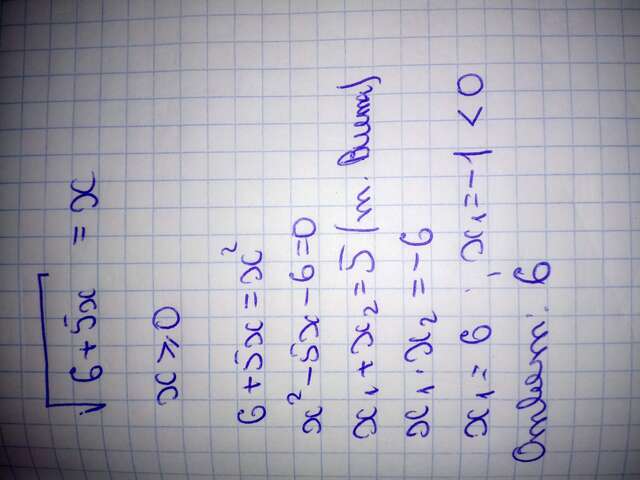 √6+5x = x
x ⩾ 0
6+5x=x²
x²-5x-6=0
x₁+x₂=5 (т. Виета)
x₁·x₂=-6
x₁=6 ; x₁=-1 < 0
Ответ: 6